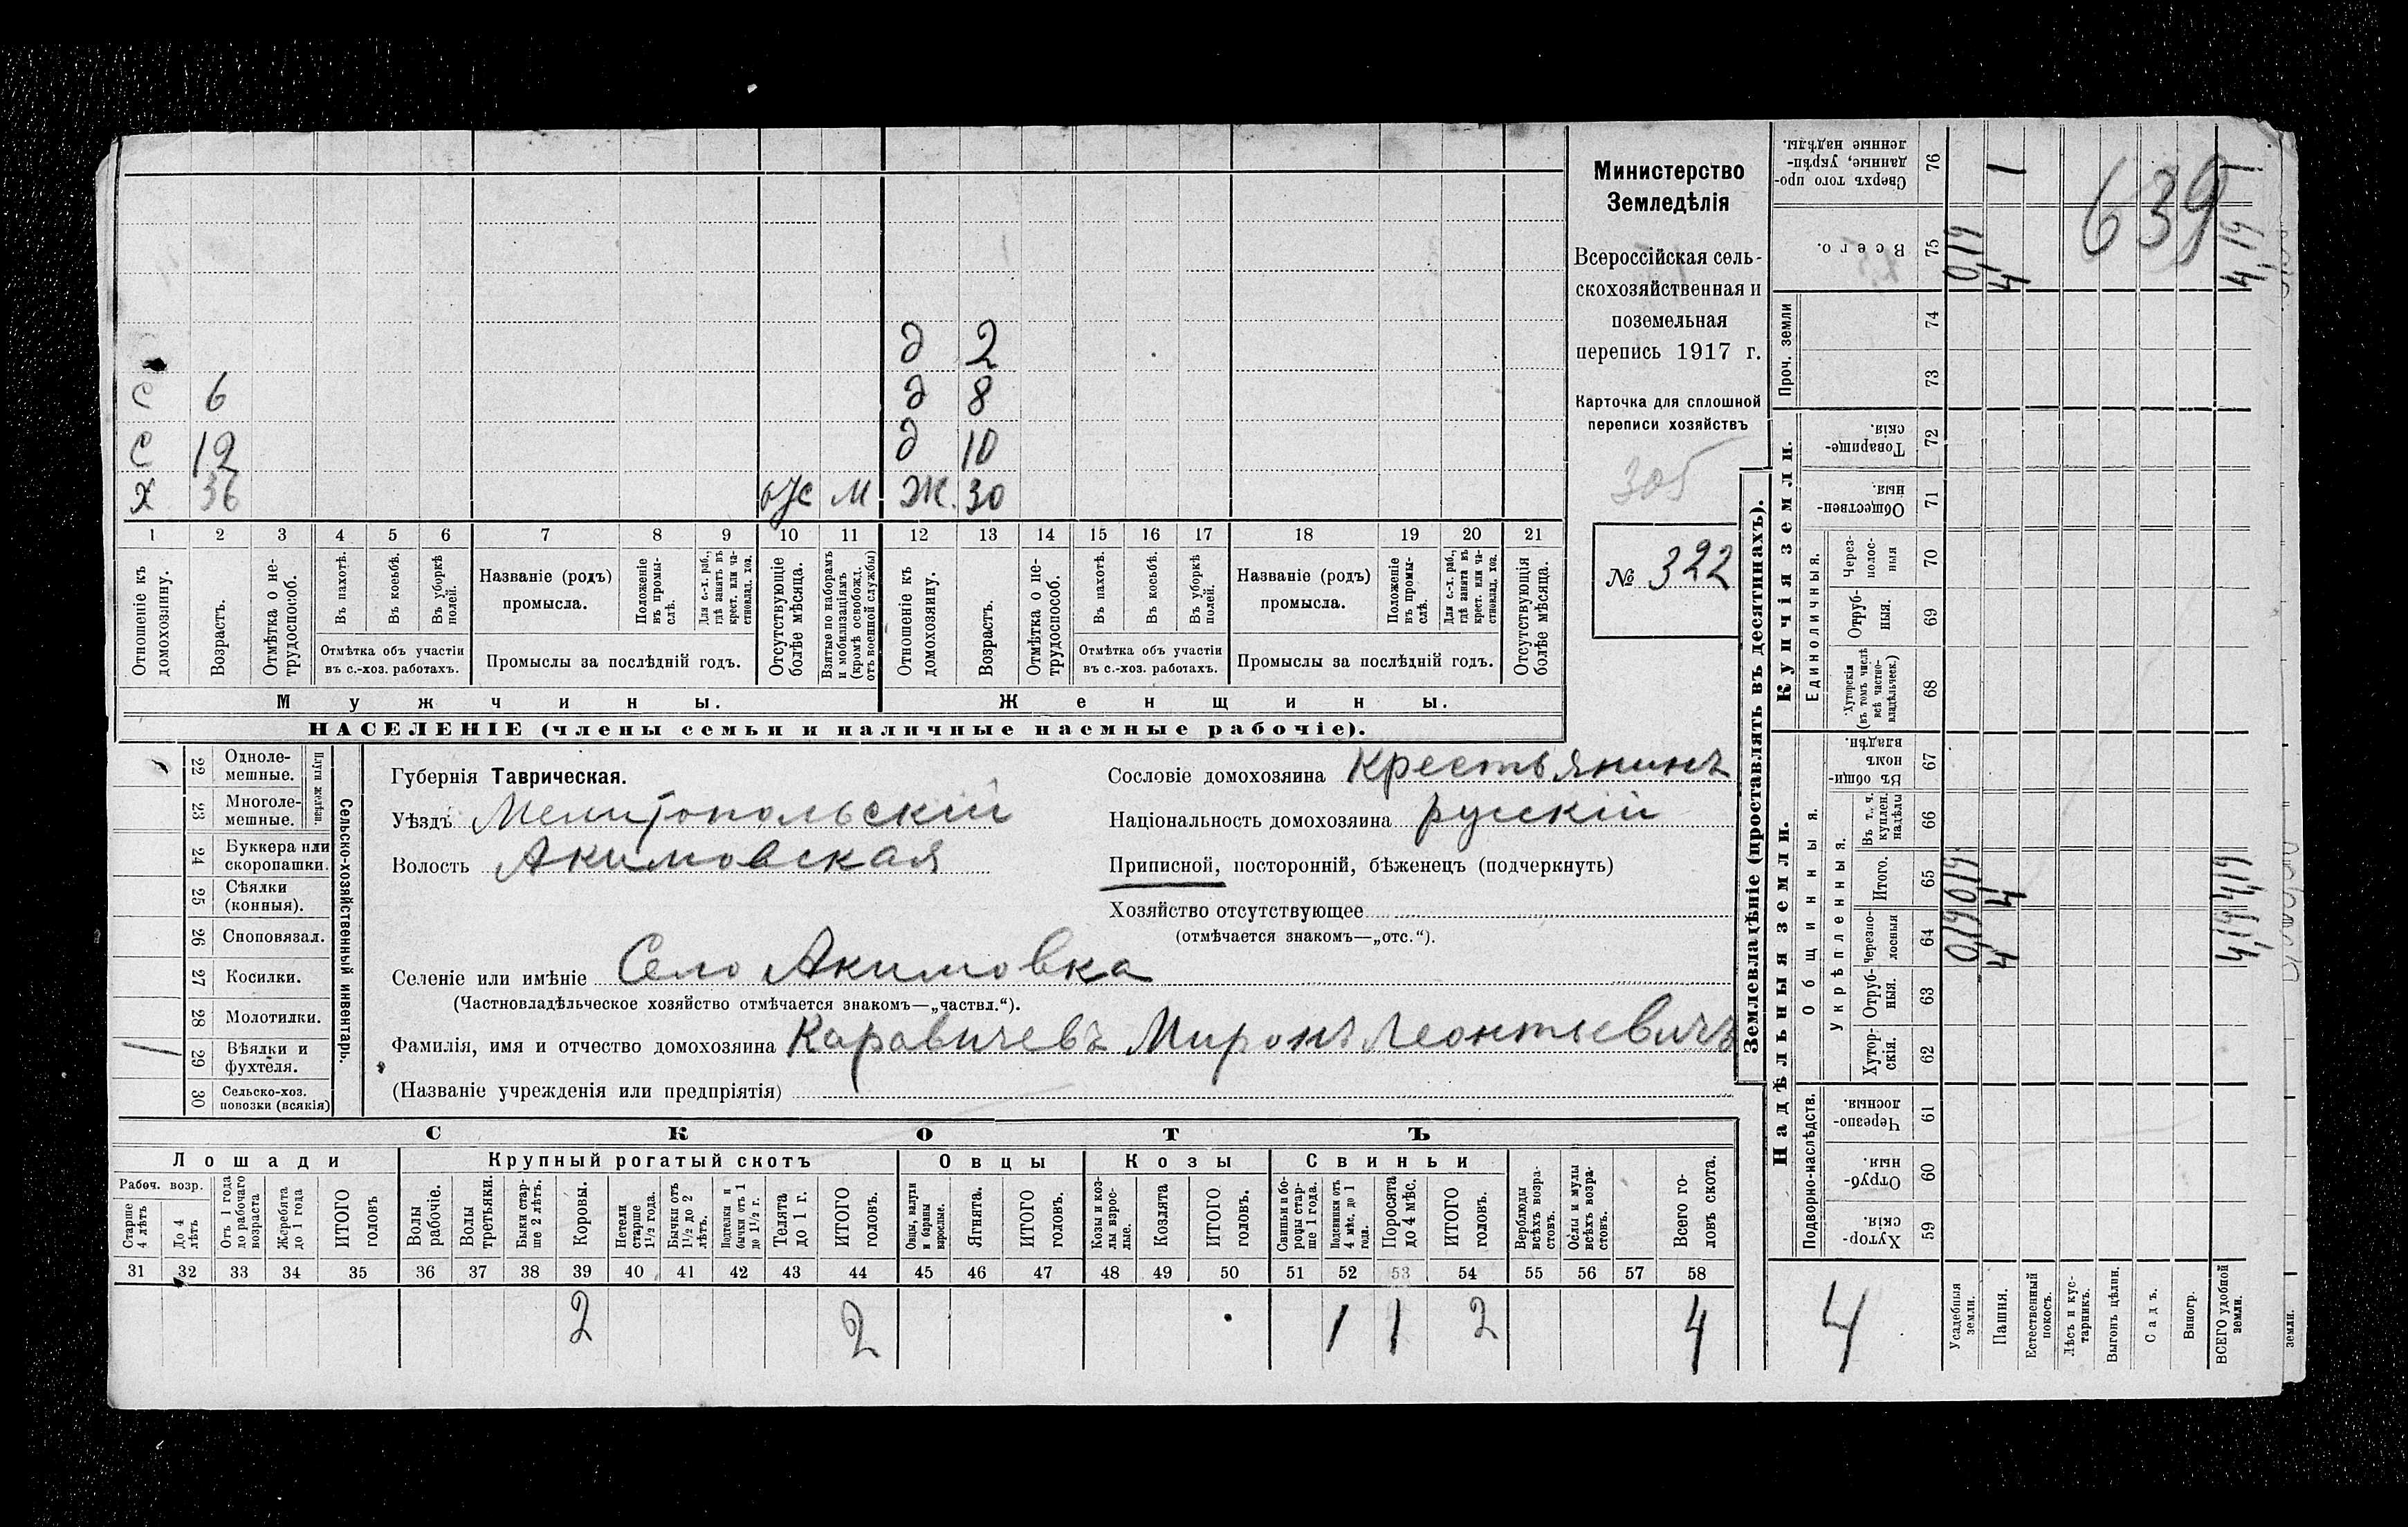 Министерство
Земледѣлія
Всероссійская сель-
скохозяйственная и
поземельная
перепись 1917 г.
Карточка для сплошной
переписи хозяйствъ
305
№ 322
д 2
С 6 д 8
С 12 д 10
Х 36 отс М Ж. 30
1 2 3 4 5 6 7 8 9 10 11 12 13 14 15 16 17 18 19 20 21
Отношеніе къ домохозяину.
Возрастъ.
Отмѣтка о не-трудоспособ.
Въ пахотѣ.
Въ косьбѣ.
Въ уборкѣ полей.
Отмѣтка объ участіи
въ с.-хоз. работахъ.
Названіе (родъ)
промысла.
Положеніе въ промы-слѣ.
Для с.-х. раб., гдѣ занятъ въ крест. или ча-стновлад. хоз.
Промыслы за послѣдній годъ.
Отсутствующіе болѣе мѣсяца.
Взятые по наборамъ и мобилизаціямъ (кромѣ освобожд. отъ военной службы)
Отношеніе къ домохозяину.
Возрастъ.
Отмѣтка о не-трудоспособ.
Въ пахотѣ.
Въ косьбѣ.
Въ уборкѣ полей.
Отмѣтка объ участіи
въ с.-хоз. работахъ.
Названіе (родъ)
промысла.
Положеніе въ промы-слѣ.
Для с.-х. раб., гдѣ занята въ крест. или ча-стновлад. хоз.
Промыслы за послѣдній годъ.
Отсутствующія болѣе мѣсяца.
Мужчины. Женщины.
НАСЕЛЕНІЕ (члены семьи и наличные наемные рабочіе).
22 Одноле-мешные.
23 Многоле-мешные.
Плуги желѣзн.
24 Буккера или скоропашки.
25 Сѣялки (конныя).
26 Сноповязал.
27 Косилки.
28 Молотилки.
1 29 Вѣялки и фухтеля.
30 Сельско-хоз. повозки (всякія)
Сельско-хозяйственный инвентарь.
Губернія Таврическая.
Уѣздъ Мелитопольскій
Волость Акимовская
Сословіе домохозяина Крестьянинъ
Національность домохозяина рускій
Приписной, посторонній, бѣженецъ (подчеркнуть)
Хозяйство отсутствующее
(отмѣчается знакомъ—„отс.“).
Селеніе или имѣніе Село Акимовка
(Частновладѣльческое хозяйство отмѣчается знакомъ—„частвл.“).
Фамилія, имя и отчество домохозяина Каравичевъ Миронъ Леонтьевичъ
(Названіе учрежденія или предпріятія)
СКОТЪ
Лошади Крупный рогатый скотъ Овцы Козы Свиньи
Рабоч. возр.
Старше 4 лѣтъ
До 4 лѣтъ
Отъ 1 года до рабочаго возраста
Жеребята до 1 года
ИТОГО головъ
Волы рабочіе.
Волы третьяки.
Быки стар-ше 2 лѣтъ.
Коровы.
Нетели старше 1½ года.
Бычки отъ 1½ до 2 лѣтъ.
Подтелки и бычки отъ 1 до 1½ г.
Телята до 1 г.
ИТОГО головъ.
Овцы, валухи и бараны взрослые.
Ягнята.
ИТОГО головъ.
Козы и коз-лы взрос-лые.
Козлята
ИТОГО головъ.
Свиньи и бо-ровы стар-ше 1 года.
Подсвинки отъ 4 мѣс. до 1 года.
Поросята до 4 мѣс.
ИТОГО головъ.
Верблюды всѣхъ возра-стовъ.
Ослы и мулы всѣхъ возра-стовъ.
Всего го-ловъ скота.
31 32 33 34 35 36 37 38 39 40 41 42 43 44 45 46 47 48 49 50 51 52 53 54 55 56 57 58
2 2 1 1 2 4
Землевладѣніе (проставлять въ десятинахъ).
Надѣльныя земли. Купчія земли. Проч. земли
Подворно-наслѣдств.
Общинныя.
Укрѣпленныя.
Единоличныя.
Сверхъ того про-данные, укрѣп-ленные надѣлы. 76
Всего. 75
74
73
Товарище-скія. 72
Обществен-ныя. 71
Через-полос-ныя 70
Отруб-ныя. 69
Хуторскія (въ томъ числѣ всѣ частно-владѣльческ.) 68
Въ общин-номъ владѣн. 67
Въ т. ч. куплен. надѣлы 66
Итого. 65
Черезпо-лосныя 64
Отруб-ныя. 63
Хутор-скія. 62
Черезпо-лосныя. 61
Отруб-ныя. 60
Хутор-скія. 59
639
0,19 4 4,19
0,19 4 4,19
0,19 4 4,19
4
Усадебныя земли.
Пашня.
Естественный покосъ.
Лѣсъ и кус-тарникъ.
Выгонъ цѣлин.
Садъ.
Виногр.
ВСЕГО удобной земли.
земли.